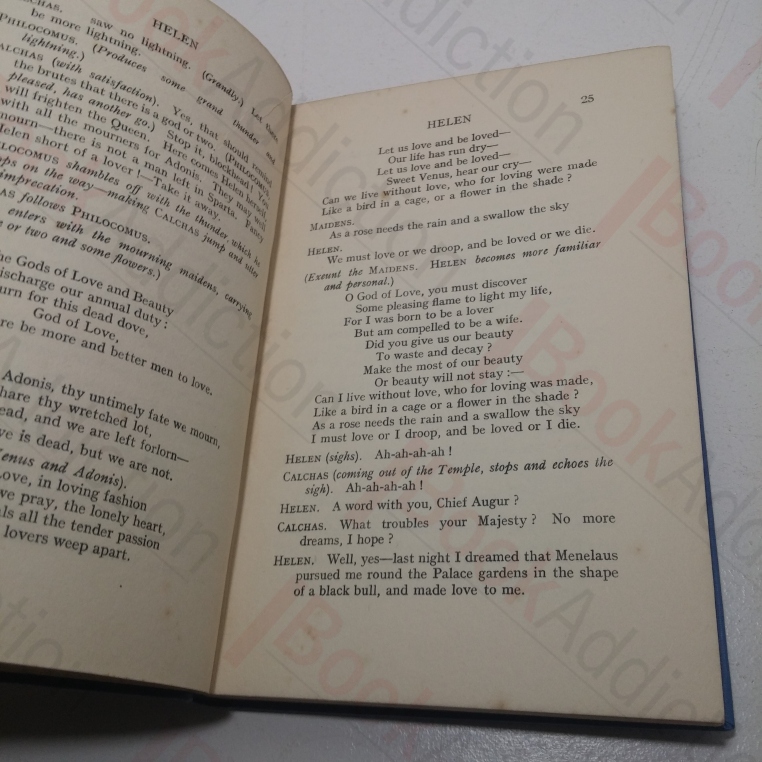 HELEN
saw no lightning. (Grandly.) Let there
be more lightning.
PHILOCOMUS. (Produces some grand thunder and
lightning.)
CALCHAS (with satisfaction). Yes, that should remind
the brutes that there is a god or two. (PHILOCOMUS,
pleased, has another go.) Stop it, blockhead! You
will frighten the Queen. Here comes Helen herself
with all the mourners for Adonis. They may well
mourn—there is not a man left in Sparta. Fancy
Helen short of a lover!—Take it away.
shambles off with the thunder, which he
on the way—making CALCHAS jump and utter
imprecation.
follows PHILOCOMUS.
enters with the mourning maidens, carrying
or two and some flowers.)
the Gods of Love and Beauty
discharge our annual duty:
for this dead dove,
God of Love,
be more and better men to love.
Adonis, thy untimely fate we mourn,
share thy wretched lot,
and we are left forlorn—
is dead, but we are not.
Venus and Adonis).
Love, in loving fashion
we pray, the lonely heart,
all the tender passion
lovers weep apart.
HELEN 25
Let us love and be loved—
Our life has run dry—
Let us love and be loved—
Sweet Venus, hear our cry—
Can we live without love, who for loving were made
Like a bird in a cage, or a flower in the shade?
MAIDENS.
As a rose needs the rain and a swallow the sky
HELEN.
We must love or we droop, and be loved or we die.
(Exeunt the MAIDENS. HELEN becomes more familiar
and personal.)
O God of Love, you must discover
Some pleasing flame to light my life,
For I was born to be a lover
But am compelled to be a wife.
Did you give us our beauty
To waste and decay?
Make the most of our beauty
Or beauty will not stay:—
Can I live without love, who for loving was made,
Like a bird in a cage or a flower in the shade?
As a rose needs the rain and a swallow the sky
I must love or I droop, and be loved or I die.
HELEN (sighs). Ah-ah-ah-ah!
CALCHAS (coming out of the Temple, stops and echoes the
sigh). Ah-ah-ah-ah!
HELEN. A word with you, Chief Augur?
CALCHAS. What troubles your Majesty? No more
dreams, I hope?
HELEN. Well, yes—last night I dreamed that Menelaus
pursued me round the Palace gardens in the shape
of a black bull, and made love to me.
BookAddiction